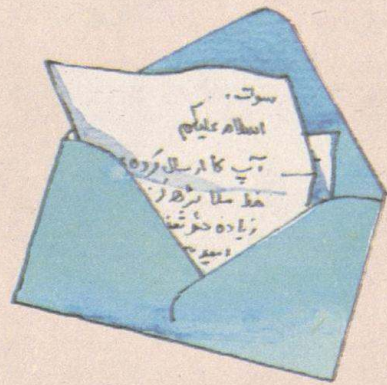 السلام علیکم
آپ کا ارسال کردہ
خط ملا پڑھ کر
زیادہ خوشی
امید